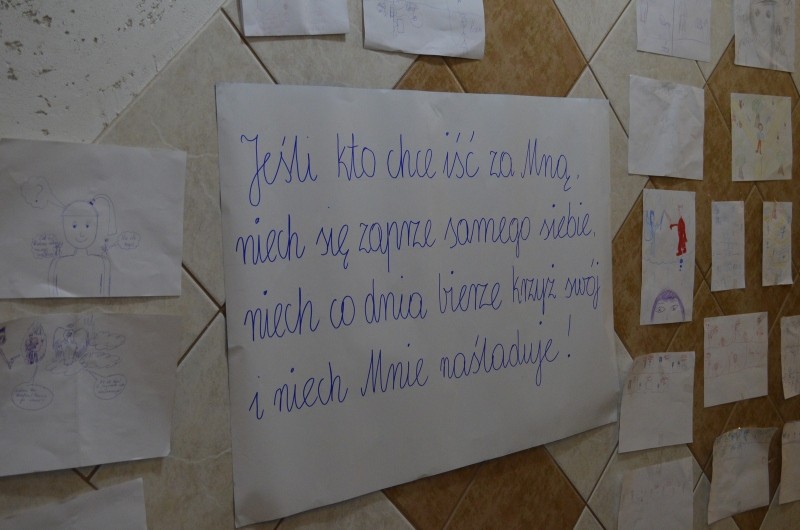 Jeśli kto chce iść za Mną,
niech się zaprze samego siebie,
niech co dnia bierze krzyż swój
i niech Mnie naśladuje!